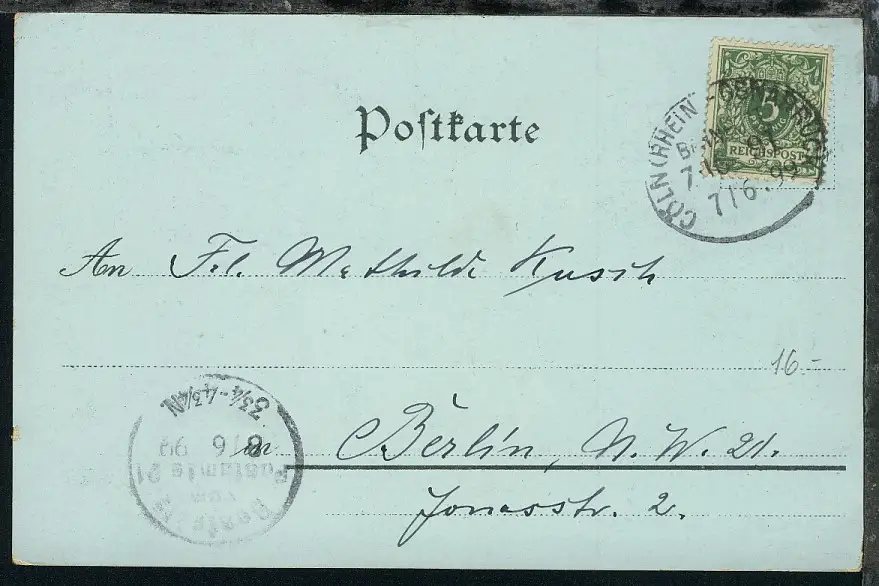 Postkarte
5
REICHSPOST
CÖLN (RHEIN) - OSNABRÜCK
7/6.99
An Frl. Mathilde Kusch
16-
in Berlin, N. W. 21.
Jonasstr. 2.
3¾-4¾N
8/6 99
Postamts 21
vom